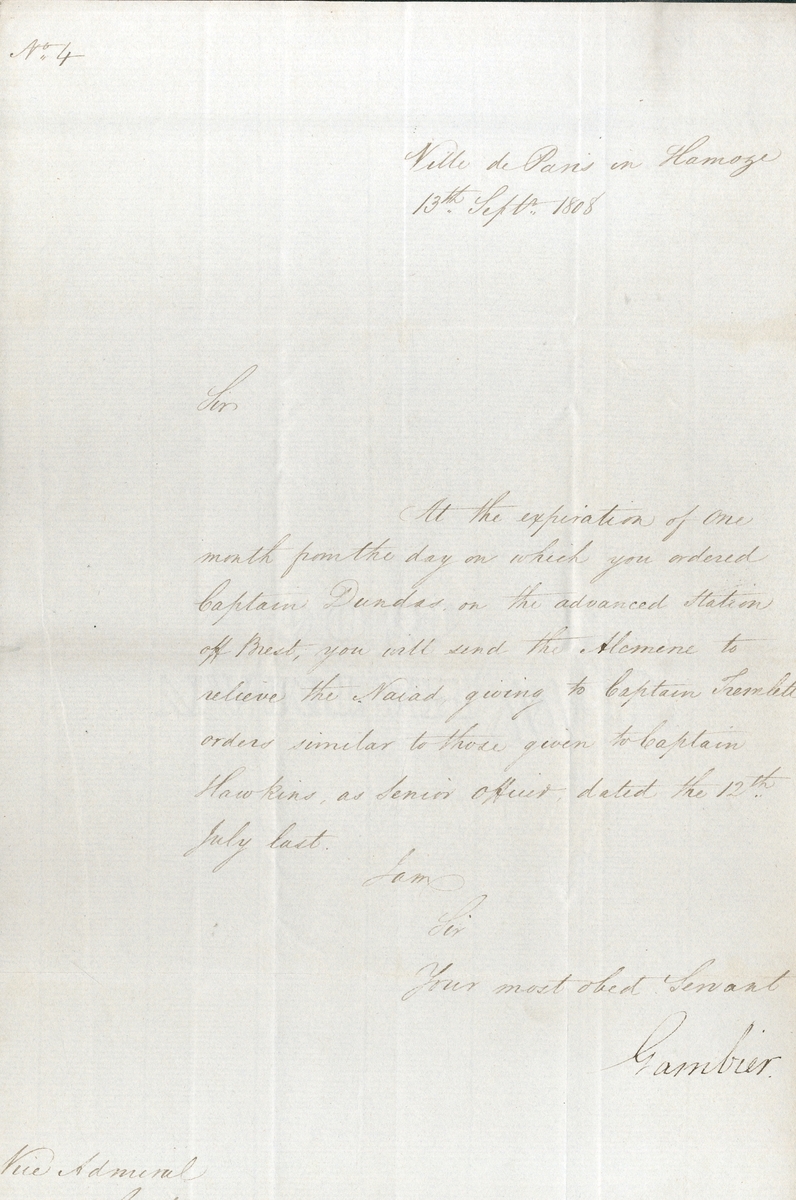 No. 4
Ville de Paris in Hamoze
13th. Septr. 1808
Sir
At the expiration of One
month from the day on which you ordered
Captain Dundas, on the advanced Station
off Brest, you will send the Alcmene to
relieve the Naiad, giving to Captain Tremlett
orders similar to those given to Captain
Hawkins, as Senior Officer, dated the 12th.
July last.
I am
Sir
Your most obed Servant
Gambier.
Vice Admiral